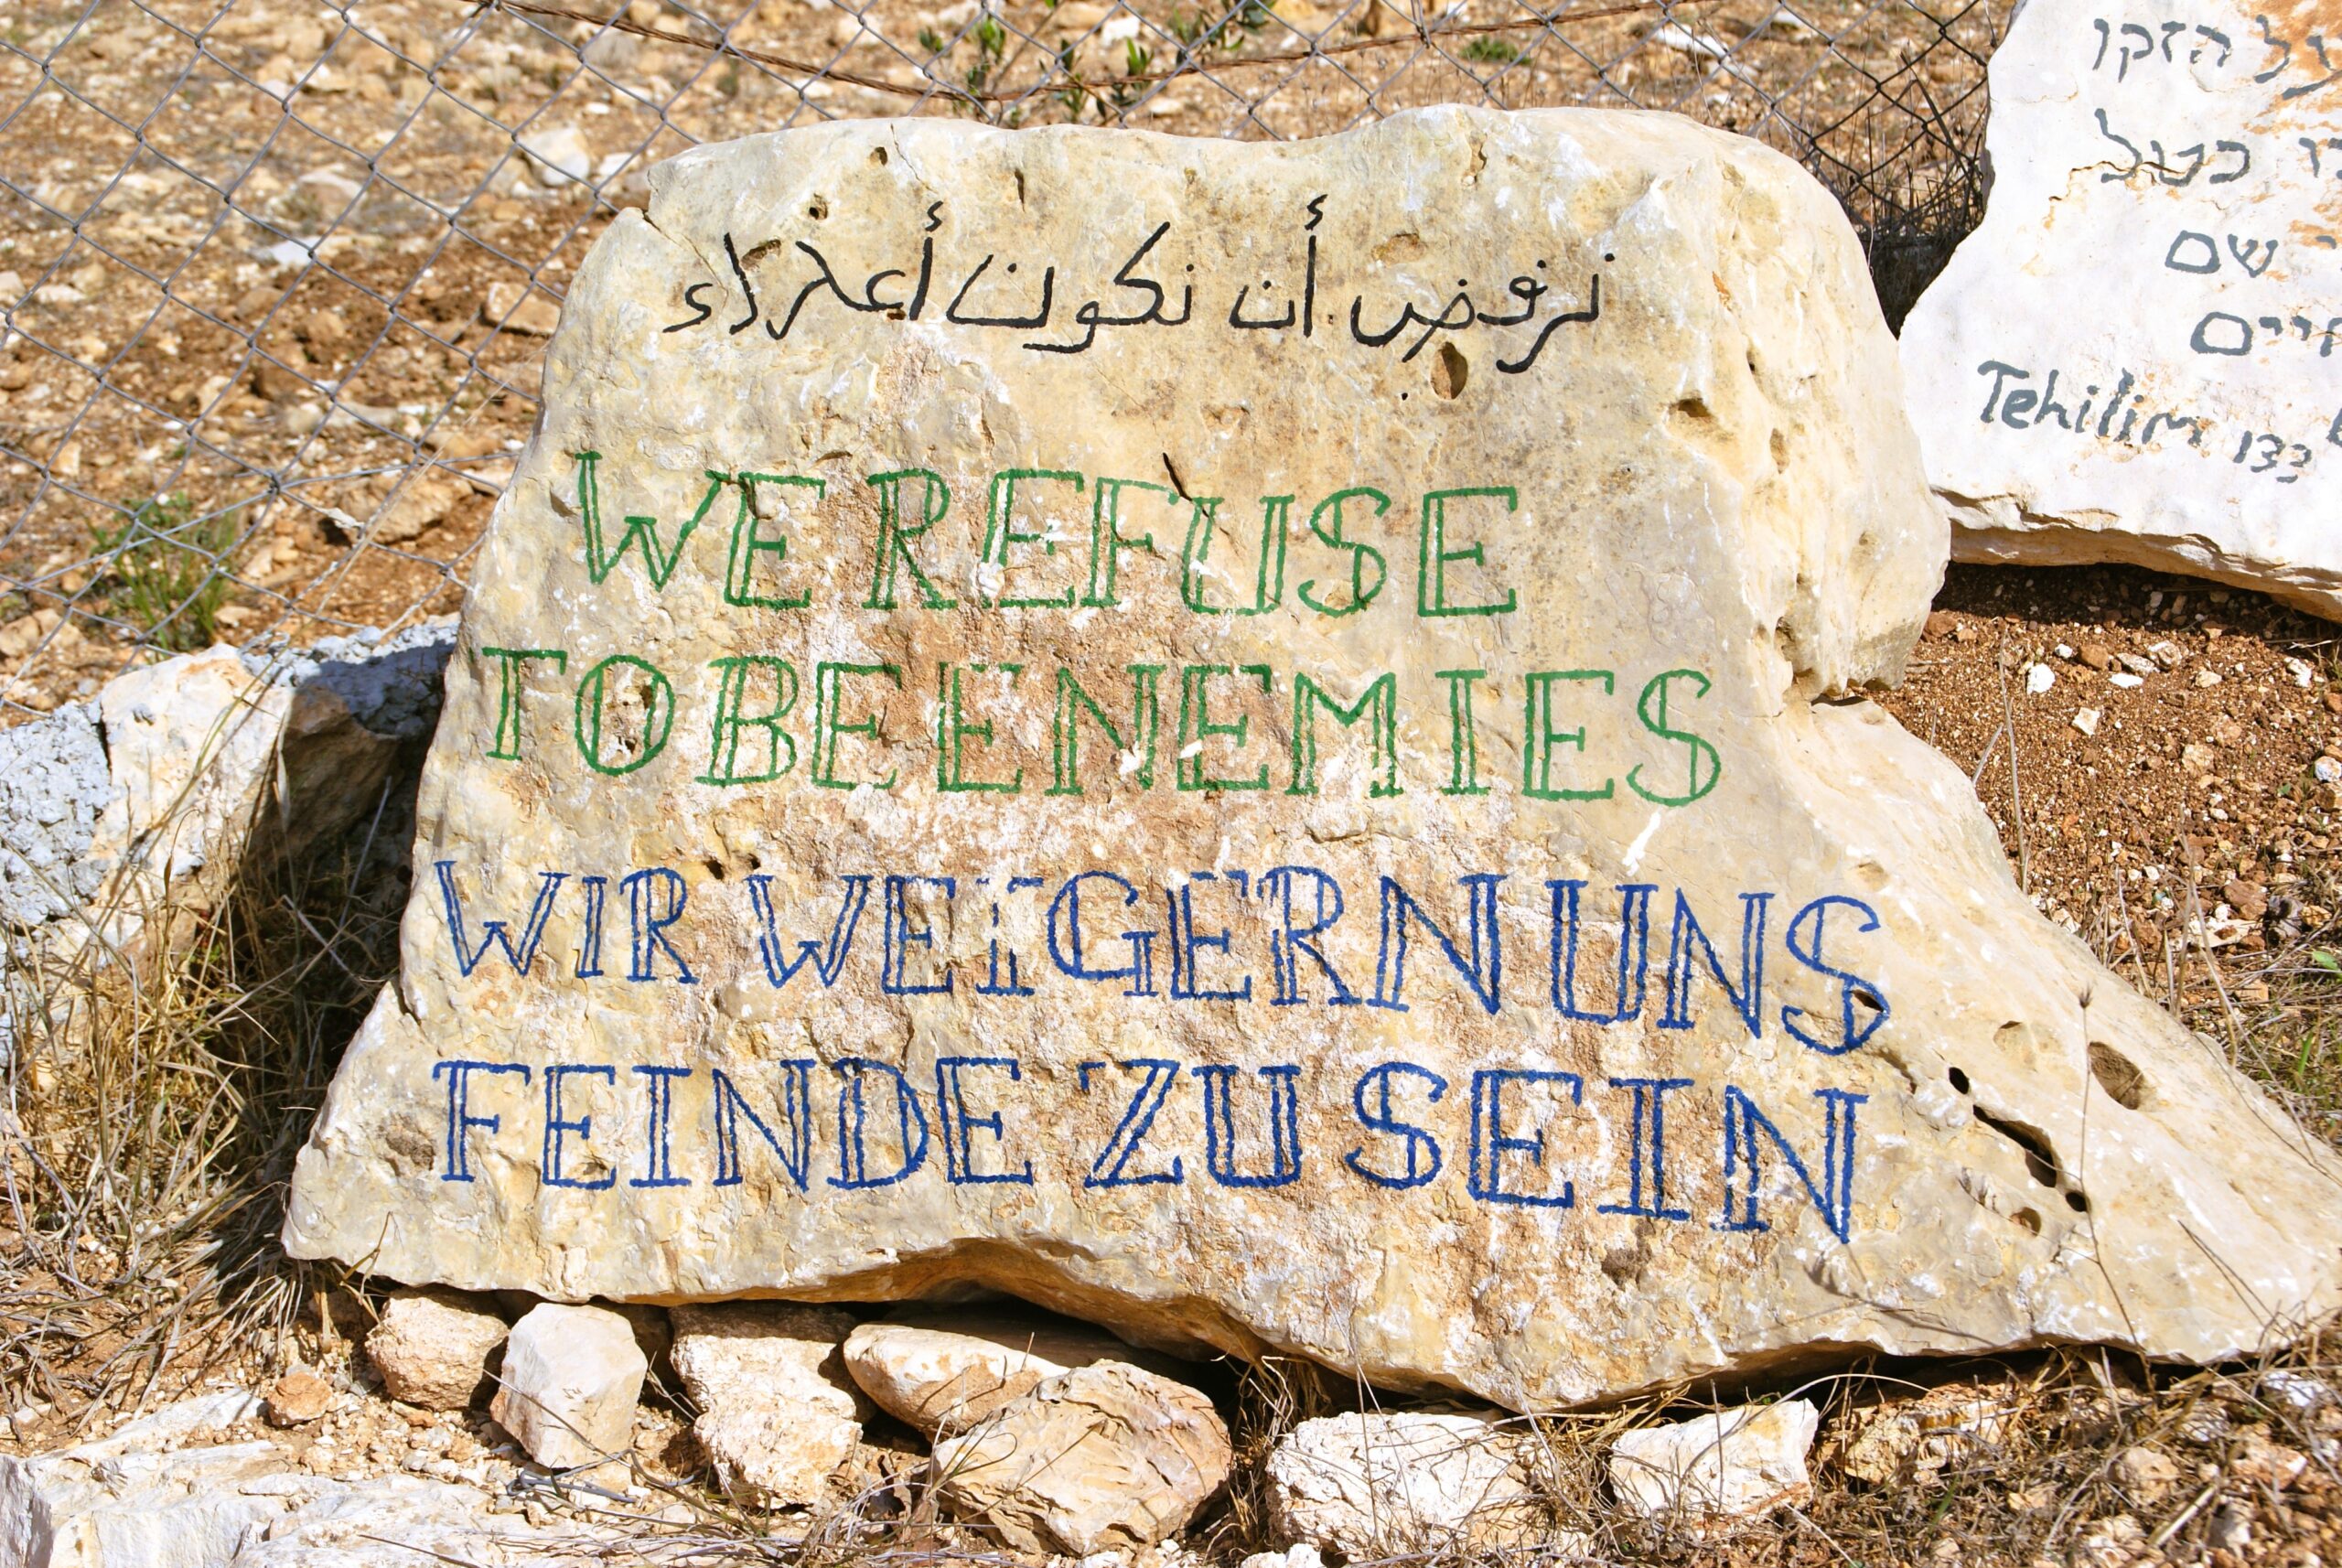 نرفض أن نكون أعداء
WE REFUSE
TO BE ENEMIES
WIR WEIGERN UNS
FEINDE ZU SEIN
על הזקן
כטל
שם
חיים
Tehilim 133